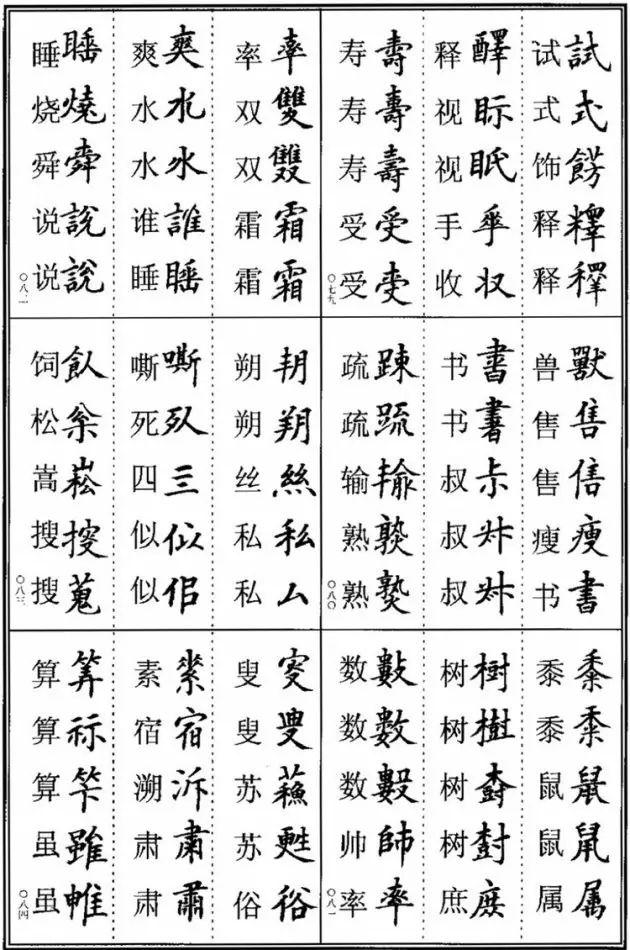 试試 式式 饰餝 释 释
释醳 视眎 视眡 手 收収
寿壽 寿壽 寿壽 受受 受
〇七九
兽獸 售售 售 瘦瘦 书書
书書 书書 叔尗 叔 叔
疏踈 疏䟽 输输 熟 熟
〇八〇
黍黍 黍黍 鼠鼠 鼠鼠 属属
树樹 树樹 树 树尌 庶庶
数數 数數 数 帅帥 率率
〇八一
率率 双雙 双雙 霜霜 霜霜
爽爽 水水 水水 谁誰 睡睡
睡睡 烧燒 舜舜 说說 说說
〇八二
朔 朔朔 丝絲 私私 私厶
嘶嘶 死 四三 似似 似佀
饲飤 松枀 嵩崧 搜 搜蒐
〇八三
叟叜 叟 苏蘓 苏甦 俗俗
素 宿宿 溯泝 肃肅 肃肅
算筭 算祘 算 虽雖 虽
〇八四